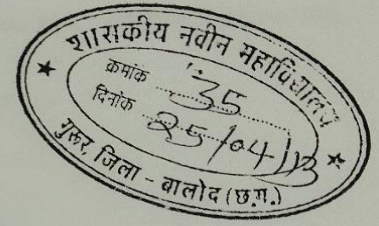 शासकीय नवीन महाविद्यालय
क्रमांक 35
दिनांक 25/04/13
गुरूर, जिला - बालोद (छ.ग.)